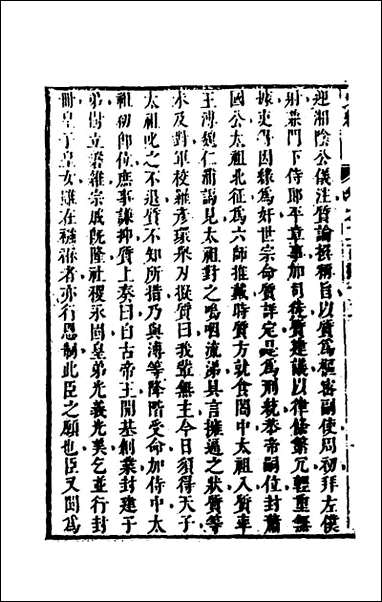 迎湘陰公儀注質論撰稱旨以質為樞密副使周初拜左僕
射兼門下侍郎平章事加司徒質建議以律條繁冗輕重無
據吏得因緣為奸世宗命質詳定是為刑統恭帝嗣位封蕭
國公太祖北征為六師推戴時質方就食閣中太祖入質率
王溥魏仁浦謁見太祖對之嗚咽流涕具言擁逼之狀質等
未及對軍校羅彥瓌舉刃擬質曰我輩無主今日須得天子
太祖叱之不退質不知所措乃與溥等降階受命加侍中太
祖初即位庶事謙抑質上奏曰自古帝王開基創業封建子
弟樹立磐維宗戚既隆社稷永固皇弟光義光美乞並行封
冊皇子皇女雖在襁褓者亦行恩制此臣之願也臣又聞為